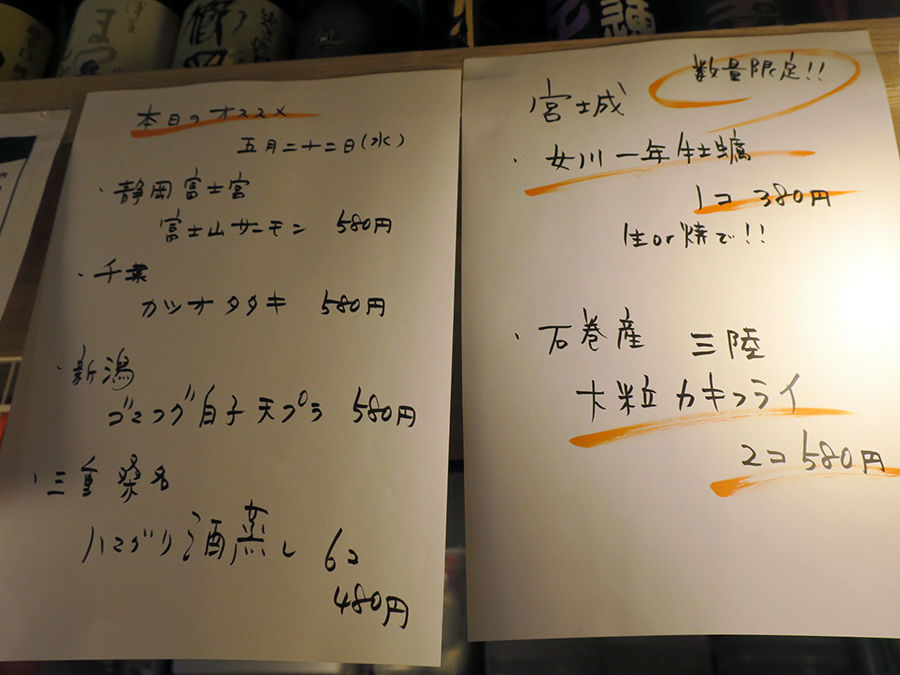 本日のオススメ
五月二十二日(水)
・静岡富士宮
富士山サーモン 580円
・千葉
カツオタタキ 580円
・新潟
ゴマフグ白子天プラ 580円
・三重桑名
ハマグリ酒蒸し 6コ
480円
数量限定!!
宮城
・女川一年牡蠣
1コ 380円
生or焼で!!
・石巻産 三陸
大粒カキフライ
2コ 580円